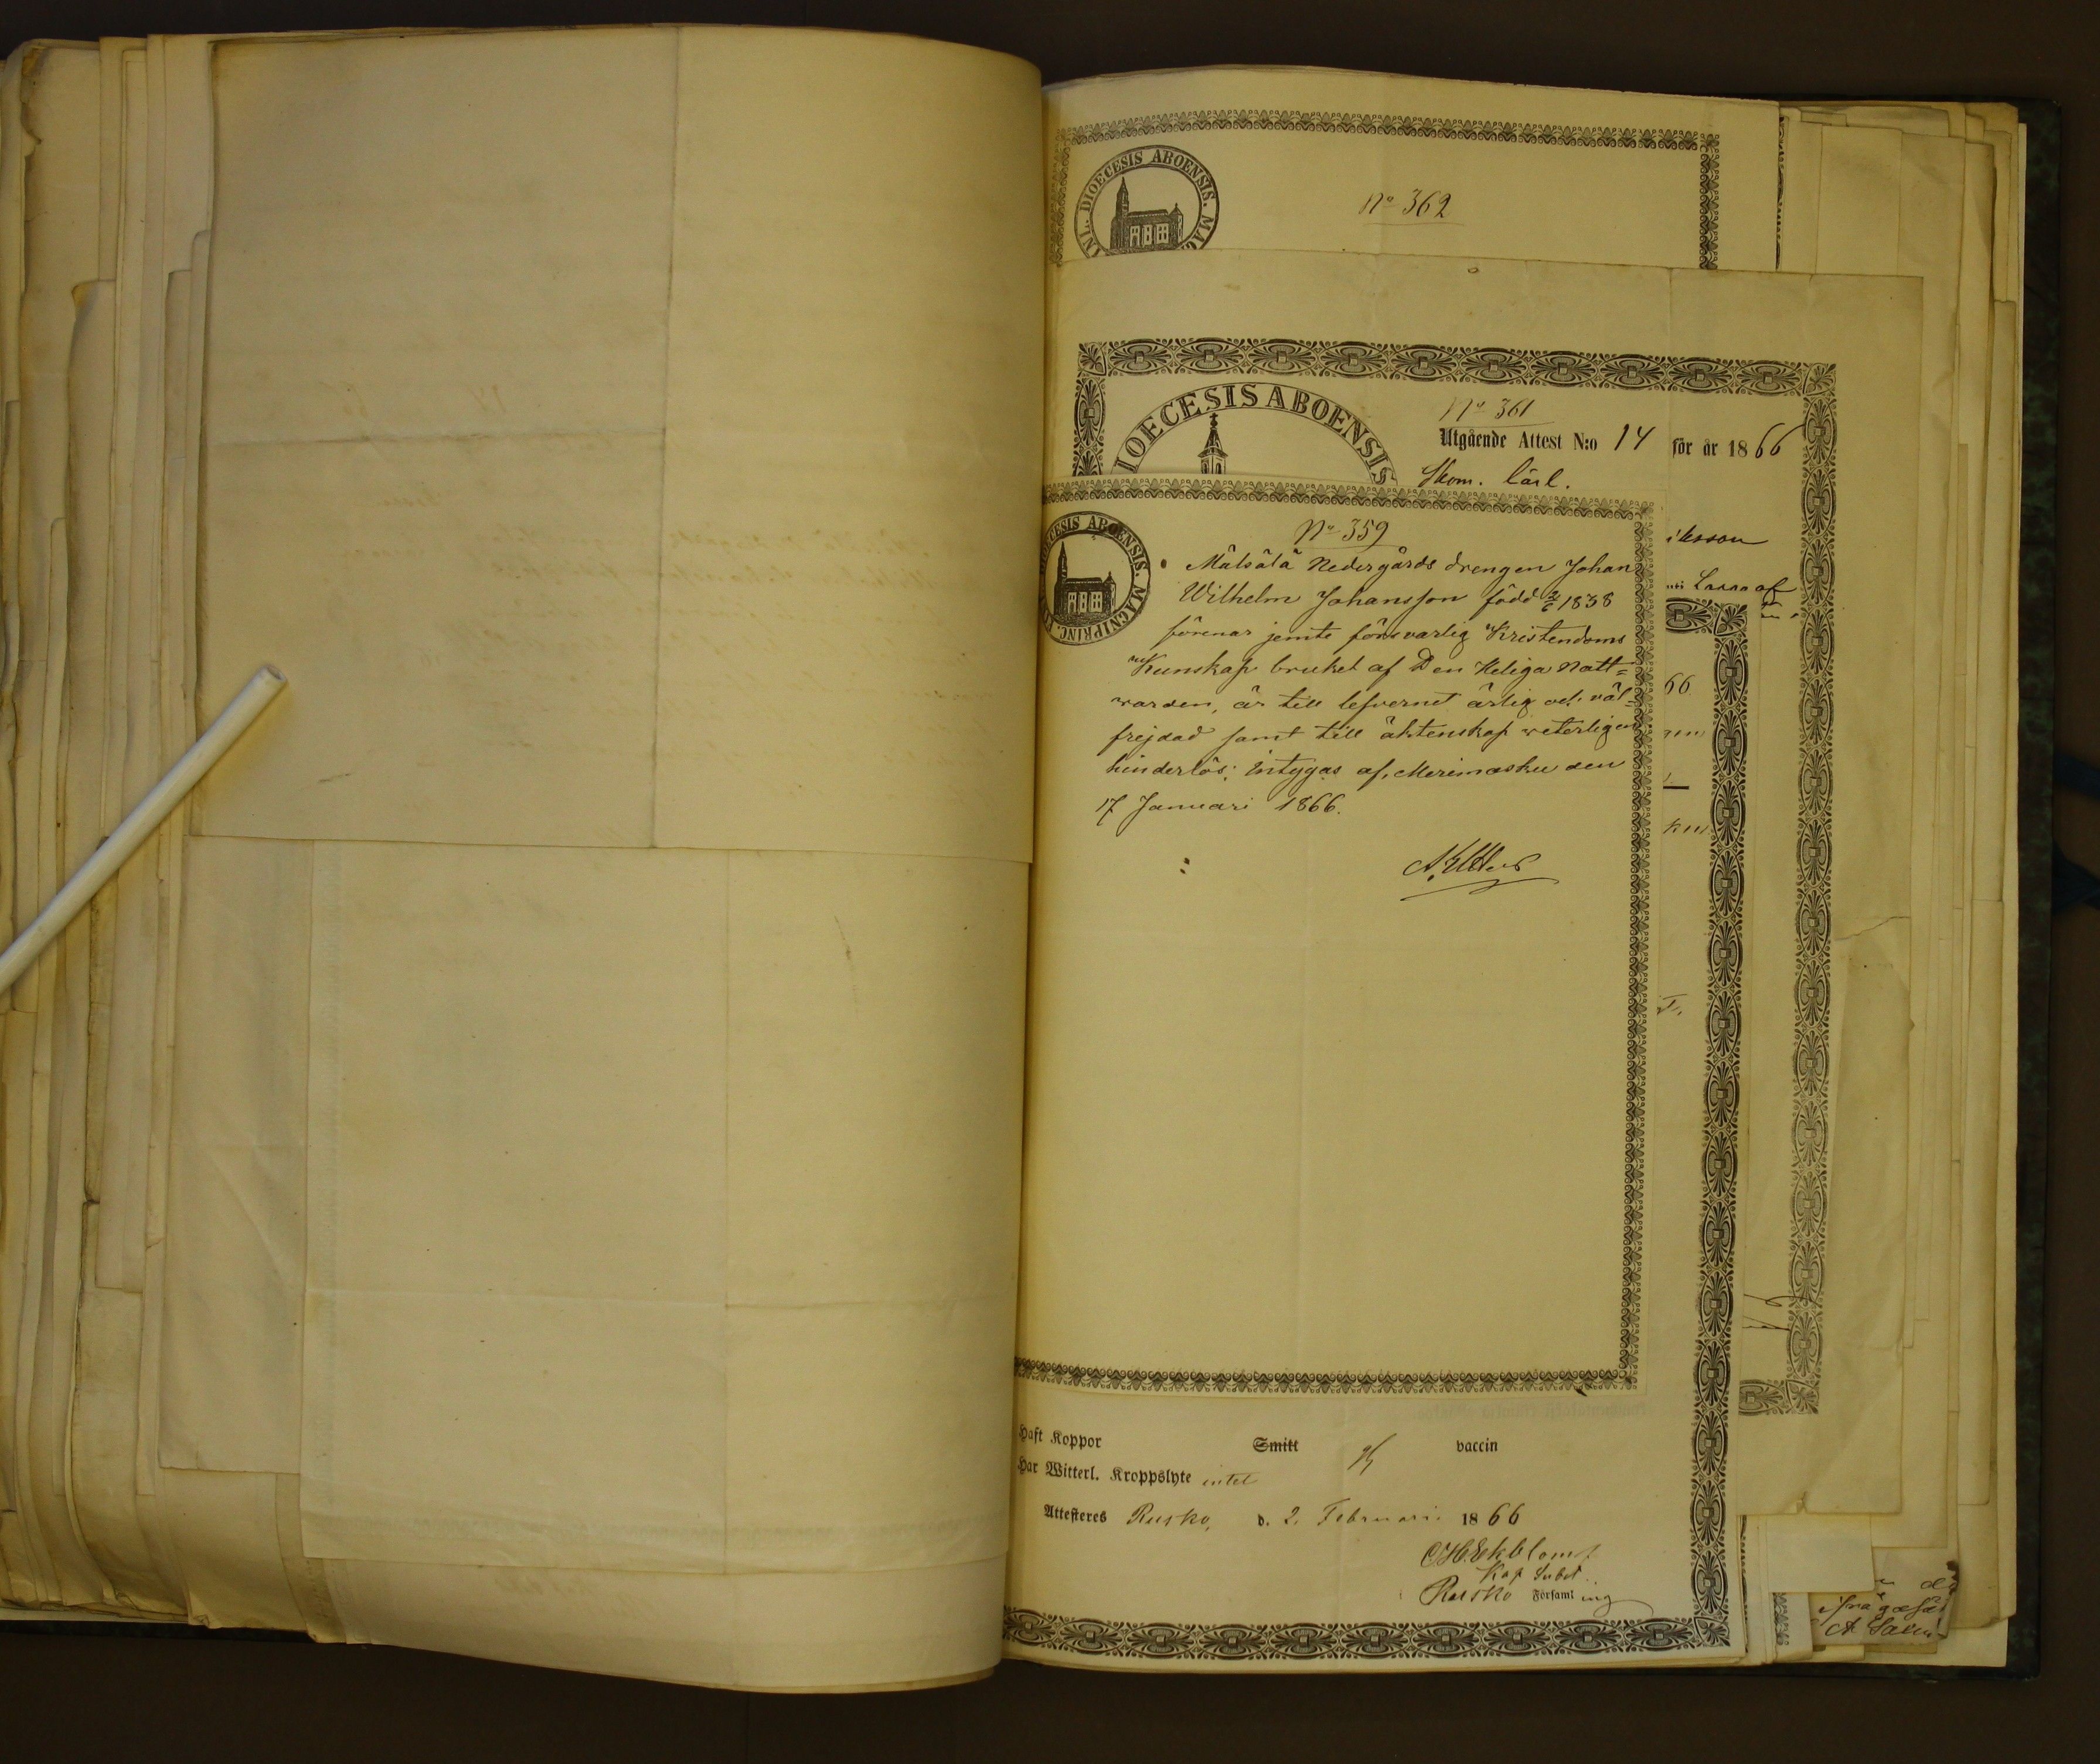 DIOECESIS ABOENSIS. MAG
No 362
IOECESIS ABOENSIS
No 361
Utgående Attest N:o 14 för år 1866
Skom. lärl.
No 359
OECESIS ABOENSIS. MAGNI PRINC.
Mälsälä Nedergårds drengen Johan
Wilhelm Johansson född 2/6 1838
förenar jemte försvarlig Kristendoms
Kunskap bruket af Den Heliga Natt=
varden, är till lefvernet ärlig och väl=
frejdad samt till äktenskap veterligen
hinderlös; Intygas af, Merimasku den
17 Januari 1866.
Lassa af
66
Haft Koppor Smitt vaccin
Har Witterl. Kroppslyte intet
Attesteres Rusko, d. 2. Februari 1866
CHEkblom
Kap Subst.
Rusko Församling